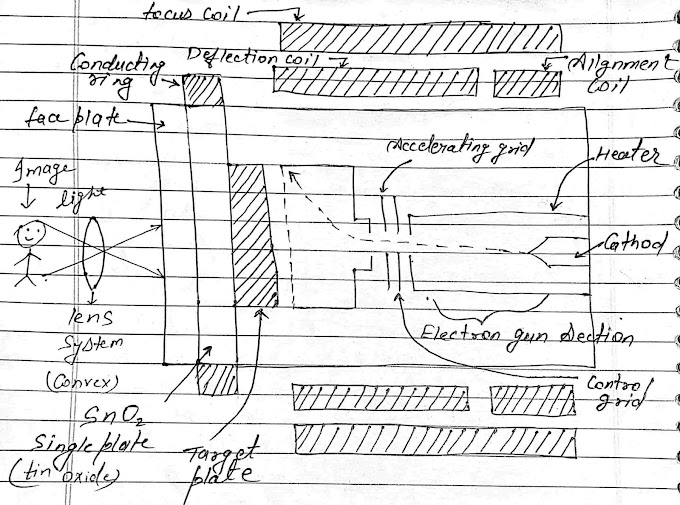 focus coil
Deflection coil
Alignment
coil
Conducting
ring
face plate
Accelerating grid
Heater
Image
light
Cathod
lens
system
(Convex)
Electron gun section
Control
grid
SnO2
Single plate
(tin oxide)
Target
plate